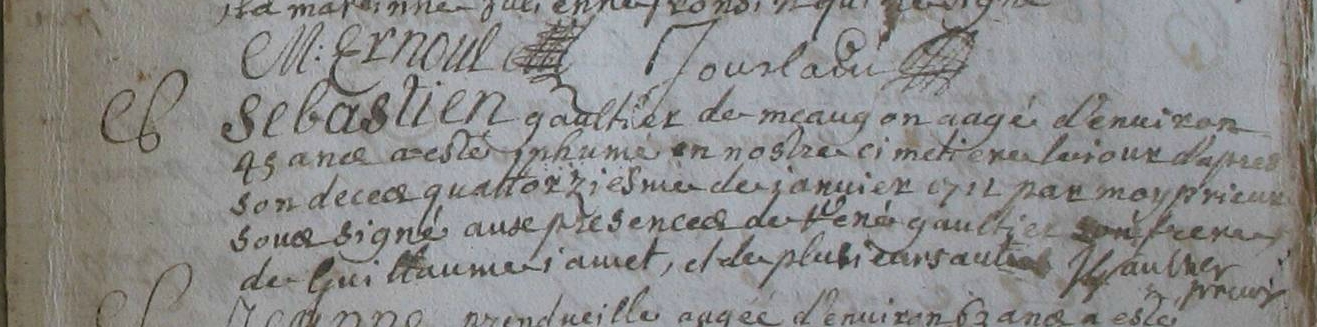 et a marinne Julienne frondin qui ne signe
M: Ernoul Jourladu
Sebastien gaultier de meaugon aagé d'enuiron
45 ans a esté inhumé en nostre cimetiere le iour d'apres
son deces quattorziesme de januier 1711 par moy prieur
sous signé aux presences de René gaultier son frere
de Guillaume iamet, et de plusieurs autres
prieur
prendueille aagée d'enuiron 62 ans a esté